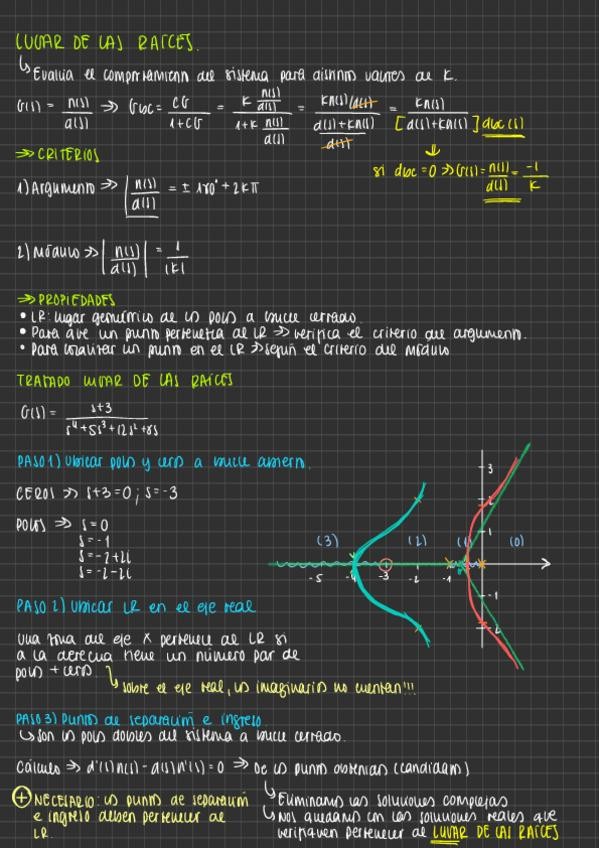 LUGAR DE LAS RAÍCES.
↳ Evalúa el comportamiento del sistema para distintos valores de K.
G(s) = n(s)/d(s) ⇒ Gbc = CG/(1+CG) = (K n(s)/d(s))/(1+K n(s)/d(s)) = (Kn(s)/d(s))/((d(s)+Kn(s))/d(s)) = Kn(s)/[d(s)+Kn(s)] dbc(s)
si dbc = 0 ⇒ G(s) = n(s)/d(s) = -1/K
⇒ CRITERIOS
1) Argumento ⇒ n(s)/d(s) = ± 180° + 2Kπ
2) Módulo ⇒ |n(s)/d(s)| = 1/|K|
⇒ PROPIEDADES
• LR: lugar geométrico de los polos a bucle cerrado.
• Para que un punto pertenezca al LR ⇒ verifica el criterio del argumento.
• Para localizar un punto en el LR ⇒ según el criterio del módulo
TRAZADO LUGAR DE LAS RAÍCES
G(s) = (s+3)/(s⁴+5s³+12s²+8s)
PASO 1) Ubicar polos y ceros a bucle abierto.
CEROS ⇒ s+3=0; s=-3
POLOS ⇒ s=0
s=-1
s=-2+2i
s=-2-2i
3
2
1
(3) (2) (1) (0)
-5 -4 -3 -2 -1
-1
-2
PASO 2) Ubicar LR en el eje real
Una zona del eje x pertenece al LR si
a la derecha tiene un número par de
polos + ceros
↳ sobre el eje real, los imaginarios no cuentan!!!
PASO 3) Puntos de separación e ingreso.
↳ Son los polos dobles del sistema a bucle cerrado.
Cálculo ⇒ d'(s)n(s) - d(s)n'(s) = 0 ⇒ De los puntos obtenidos (candidatos)
↳ Eliminamos las soluciones complejas
↳ Nos quedamos con las soluciones reales que
verifiquen pertenecer al LUGAR DE LAS RAÍCES
⊕ NECESARIO: los puntos de separación
e ingreso deben pertenecer al
LR.